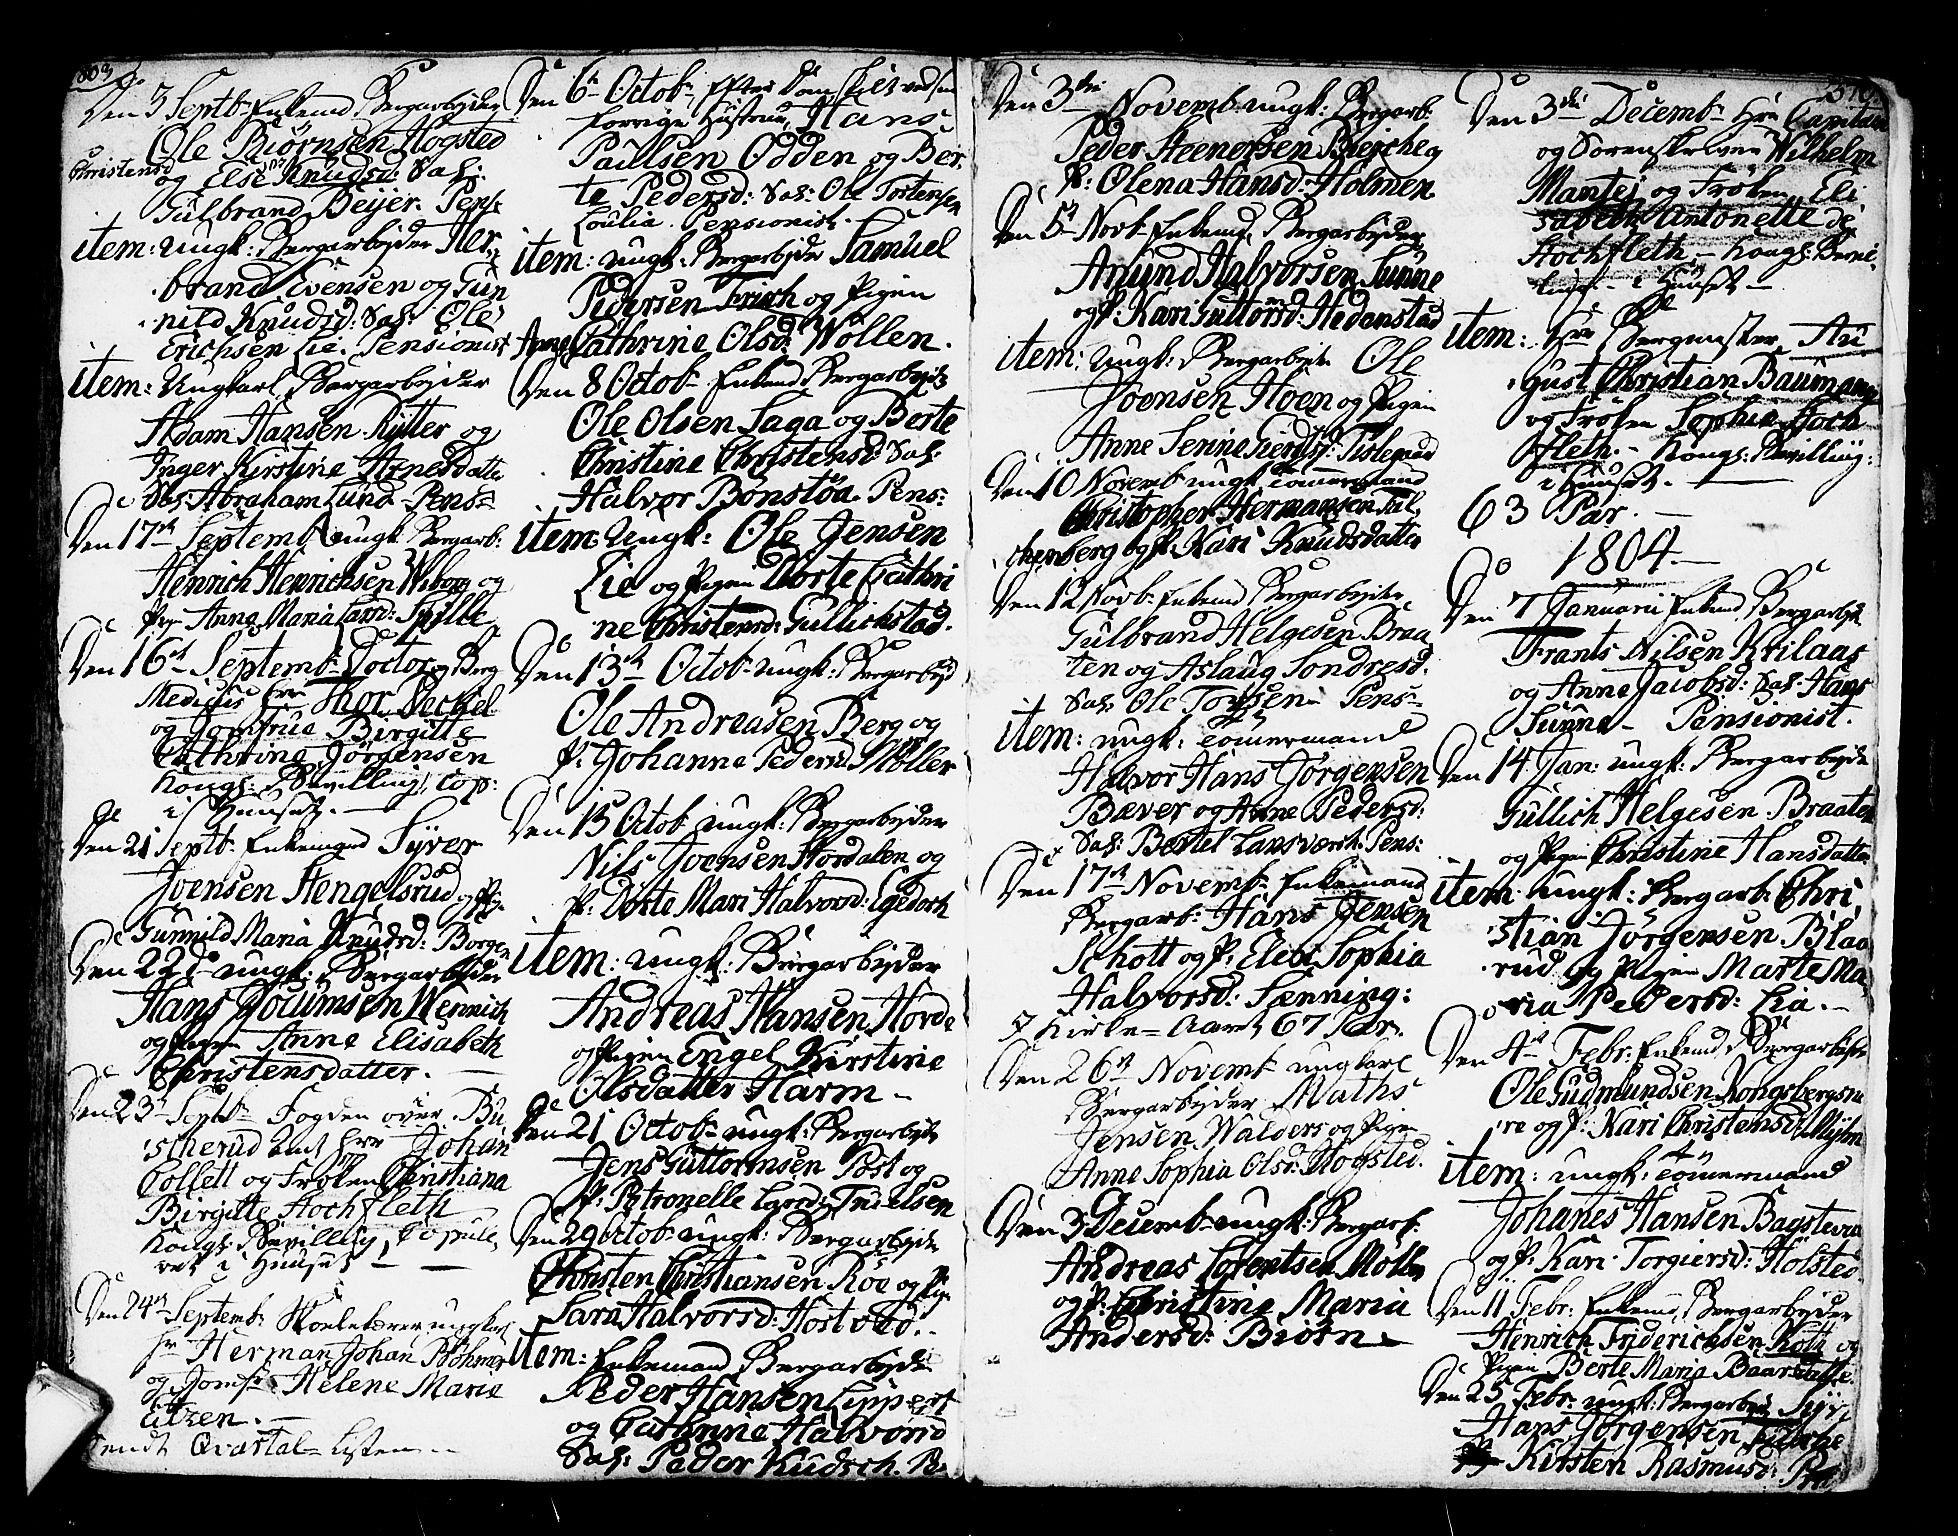 1803
Den 3 Septb. Enkemd Bergarbejder
Ole Biørnsen Hogsted
Christensd
og Else Knudsd: Sal:
Gulbrand Beyer. Pens:
item: Ungk: Bergarbejder Her-
brand Evensen og Gun
nild Knudsd: Sal: Ole
Erichsen Lie. Pensionist
item: Ungkarl Bergarbejder
Adam Hansen Rytter og
Inger Kirstine Arnesdatter
Sal: Abraham Lund Pens:
Den 17de Septemb. ungk Bergarb:
Henrich Henrichsen Wiborg og
Pig: Anna Maria Larsd:
Den 16de Septemb. Doctor og Berg
Medicus Hrr Thor Seckel
og Jomfrue Birgitte
Cathrine Jørgensen
Kongs: Bevilling, Cop:
i Huuset.
Den 21 Septb. Enkemand Syver
Joensen Hengelsrud og Pig:
Gunnild Maria Knudsd: Borgen
Den 22de ungk: Bergarbejder
Hans Wennich
og Pigen Anne Elisabeth
Christensdatter.
Den 23de Septb. Fogden over Bu
scherud Amt Hrr Johan
Collett og Frøken Christiana
Birgitte Hochfleth
Kongs: Bevilling, Copule,
ret i Huuset
Den 24de Septemb. Skoelelærer ungkarl
Hr Herman Johan Bøhmer
og Jomfr: Helene Marie
Eitzen.
Sendt Qvartal Listen
Den 6te Octob. Efter Dom skilt ved sin
forrige Hustrue, Hans
Paulsen Odden og Ber
te Pedersd: Sal: Ole Tostensen
Loulia. Pensionist.
item: ungk. Bergarbejder Samuel
Pedersen Frisch og Pigen
Anne Cathrine Olsd: Wollen.
Den 8 Octob Enkemd Bergarbejder
Ole Olsen Saga og Berte
Christine Christensd: Sal:
Halvor Bonstøa. Pens:
item: Ungk: Ole Jensen
Lie og Pigen Dorte Cathri
ne Christensd: Gullichstad.
Den 13de Octob. ungk: Bergarbejd
Ole Andreasen Berg og
P: Johanne Pedersd Møller
Den 15 Octob. ungk: Bergarbejder
Nils Joensen Hordalen og
P: Dorte Mari Halvorsd: Egedoch
item: ungk: Bergarbejder
Andreas Hansen Horde
og Pigen Engel Kirstine
Olsdatter Harm
Den 21 Octob. ungk: Bergarbejder
Jens Guttormsen Post og
P: Petronelle Larsd:
Den 29 Octob. ungk: Bergarbejder
Christen Christiansen Roe og Pig:
Sara Halvorsd: Hostved.
item: Enkemand Bergarbejder
Peder Hansen Lippert
og Cathrine Halvorsd
Sal: Peder Kudsch. P.
Den 3die Novemb. ungk: Bergarb.
Peder Steenersen og
P: Olena Hansd: Holmen
Den 5te Novb. Enkemd, Bergarbejder
Amund Halvorsen Sunne
og P: Kari Guttormsd: Hedenstad
item: Ungk: Bergarbejder Ole
Joensen Hoen og Pigen
Anne Senne Fislegaard
Den 10 Novemb ungk Tømmermand
Christopher Hermansen Fal,
chenberg og P: Kari Knudsdatter
Den 12 Novb. Enkemd Bergarbejder
Gulbrand Helgesen Braa
ten og Aslaug Sondresd:
Sal: Ole Torgsen Pens:
item: ungk: Tømmermand
Halvor Hans Jørgensen
Bæver og Anne Pedersd:
Sal: Bertel Lansværch Pens:
Den 17de Novemb. Enkemand
Bergarb: Hans Jensen
Schott og P: Elen Sophia
Halvorsd: Lænning:
Kirke-Aaret 67 Par.
Den 26de Novemb ungkarl
Bergarbejder Maths
Jensen Walders og Pigen
Anne Sophia Olsd: Hogsted.
Den 3 Decemb. ungk: Bergarb:
Andreas Lorentsen Møller
og P: Christine Maria
Andersd: Biørn
Den 3die Decemb. Hrr Capitain
og Sorenskriver Wilhelm
Mantej og Frøken Eli
sabeth Antonette de
Hochfleth Kongs: Bevil:
ling i Huuset
item: Hrr Bergmester Au
gust Christian Baumann
og Frøken Sophia Hoch
fleth. Kongs: Bevilling:
i Huuset.
63 Par.
1804.
Den 7 Januarii Enkemd. Bergarbejder
Frants Nilsen Krilaas
og Anne Jacobsd: Sal: Hans
Sunne Pensionist.
Den 14 Jan: ungk: Bergarbejder
Gullich Helgesen Braaten
og Pigen Christine Hansdatter
item: ungk: Bergarb: Chri,
stian Jørgensen Blaa
rud og Pigen Marte Ma
ria Pedersd: Lia.
Den 4de Febr: Enkemd. Bergarbejder
Ole Gudmundsen Kongsbergsm
re og P: Kari Christensd:
item: ungk: Tømmermand
Johanes Hansen Bagstevn
og P: Kari Torgiersd: Holsted
Den 11 Febr: Enkemd. Bergarbejder
Henrich Friderichsen Koth og
Pigen Berte Maria Baarsdatter
Den 25 Febr: ungk: Bergarbejder Syv
Hans Jørgensen
Kirsten Rasmusd: